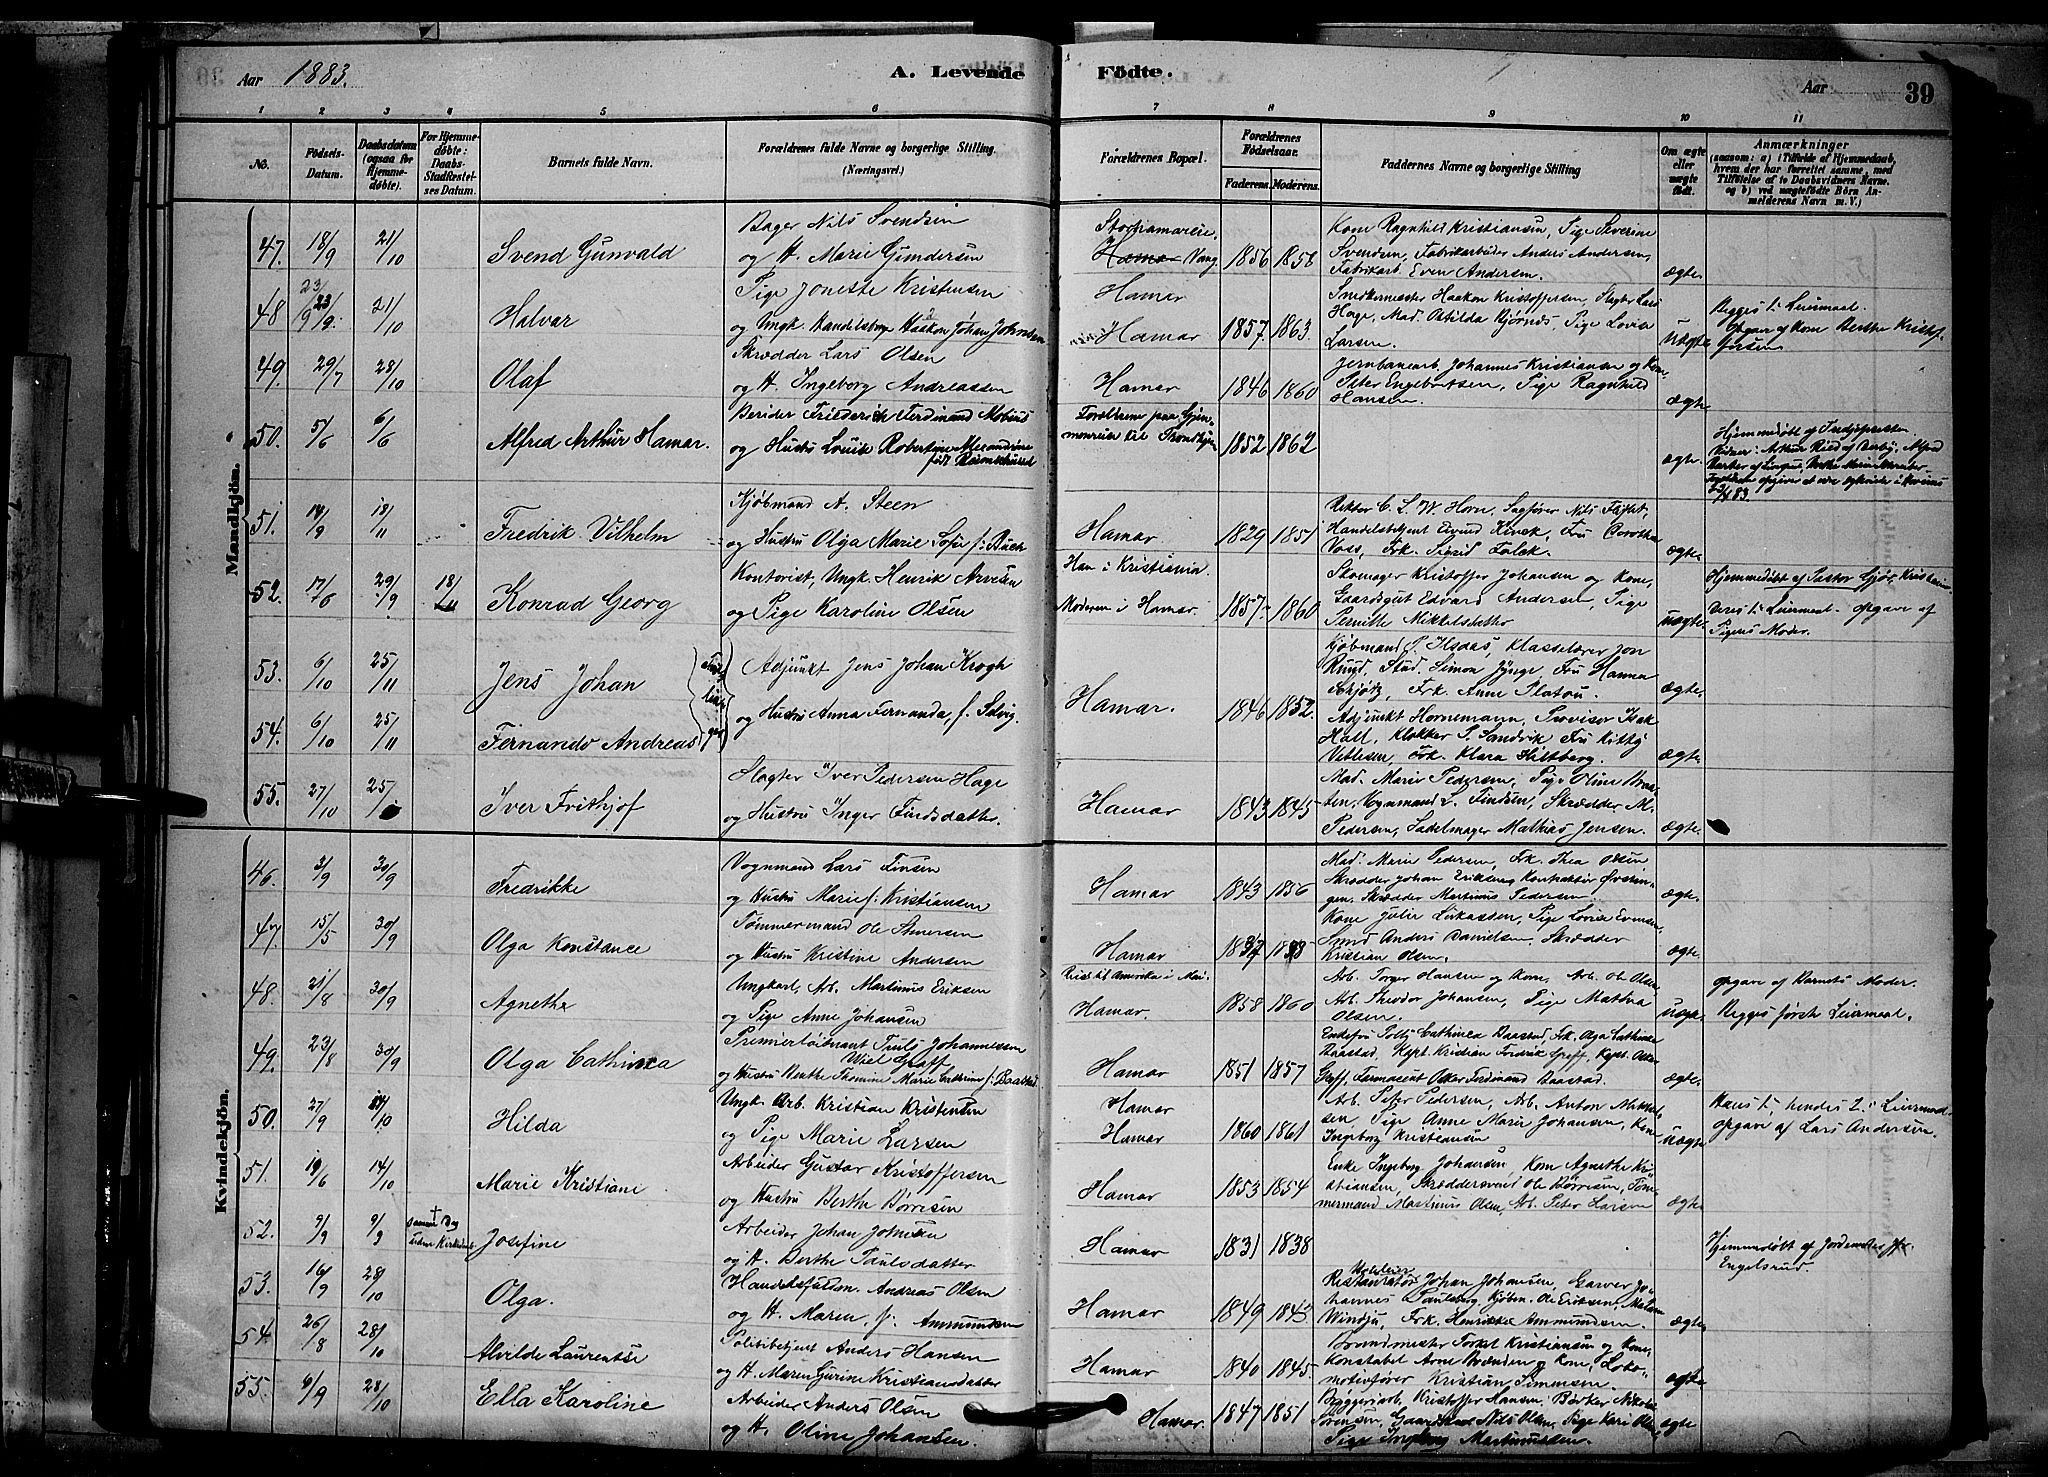 Aar 1883.
A. Levende Födte.
Aar
39
1 2 3 4 5 6 7 8 9 10 11
No.
Födsels-Datum.
Daabsdatum (ogsaa for Hjemmedøbte).
For Hjemmedøbte: Daabs-Stadfæstelses Datum.
Barnets fulde Navn.
Forældrenes fulde Navne og borgerlige Stilling. (Næringsvei.)
Forældrenes Bopæl.
Forældrenes Födselsaar.
Faderens. Moderens.
Faddernes Navne og borgerlige Stilling
Om ægte eller uægte födt.
Anmærkninger
(saasom: a) i Tilfælde af Hjemmedaab,
hvem der har forrettet samme, med
Tilföielse af to Daabsvidners Navne.
og b) ved uægtefödte Börn Anmelderens Navn m. V.)
Mandkjön.
47. 18/9 21/10 Svend Gunvald
Bager Nils Svendsen
og H. Marie Gundersen
Vang 1856 1858
Kone Ragnhild Kristiansen, Pige Severine
Svendsen, Fabrikarbeider Anders Andersen,
Fabrikarb. Even Andersen. ægte
48 23/9 21/10 Halvar
Pige Joneste Kristensen
og Ungk. Handelsborger Haakon Johan Johnsen
Hamar
Hamar 1857. 1863.
Snedkermester Haakon Kristoffersen, Slagter Lars
Hage, Mad. Otilda Bjørnds, Pige Lovise
Larsen. uægte
Begges 1. Leiermaal.
Opgave af Kone Berthe Kristoffersen
49. 29/7 28/10 Olaf
Skrædder Lars Olsen
og H. Ingeborg Andreassen
Hamar 1846 1860
Jernbanearb. Johannes Kristiansen og Kone,
Peter Engebretsen, Pige Ragnhild
Hansen. ægte
50. 5/6 6/6 Alfred Arthur Hamar.
Berider Friederich Ferdinand Mobius
og Hustru Louise Robertine Alexandrine
født Rosenskjiold
Forældrene paa Gjennemreise til Trondhjem 1852 1862 ægte
51. 14/9 18/11 Fredrik Vilhelm
Kjøbmand A. Steen
og Hustru Olga Marie Sofie f. Buch
Hamar 1829 1851
Rektor C. L. W. Horn, Sagfører Nils
Handelsbetjent Eivind Kinck, Fru Dorothea
Voss, Frk. Sigrid Falck. ægte
52. 17/6 29/9 18/11 Konrad Georg
Kontorist, Ungk. Henrik Arvesen
og Pige Karoline Olsen
Han i Kristiania.
Moderen i Hamar. 1857 1860
Skomager Kristoffer Johansen og Kone,
Gaardsgut Edvard Andersen, Pige
Pernille Mikkelsdatter uægte
Hjemmedøbt af Pastor Gjør, Kristiania
Deres 1. Leiermaal. Opgave af
Pigens Moder.
53. 6/10 25/11 Jens Johan
54. 6/10 25/11 Fernando Andreas
Tvillinger
Adjunkt Jens Johan Krogh
og Hustru Anna Fernanda, f. Selvig.
Hamar. 1846 1852.
Kjøbmand P. Ilsaas, Klasselærer Jon
Ruud, Stud. Simon Jynge, Fru Hanna
Schjøtz, Frk. Anne Platou. ægte
Adjunkt Hornemann, Provisor Isak
Hall, Klokker P. Sandvik Fru Kitty
Viblesen, Frk. Klara Hiltberg. ægte
55. 27/10 25/ Iver Frithjof
Slagter Iver Pedersen Hage
og Hustru Inger Finsdatter.
Hamar 1843 1845
Mad. Marie Pedersen, Pige Oline Braten,
Vognmand L. Findsen, Skrædder M.
Pedersen, Sadelmager Mathias Jensen. ægte
Kvindekjön.
46. 3/9 30/9 Fredrikke
Vognmand Lars Finsen
og Hustru Marie f. Kristiansen
Hamar 1843 1856
Mad. Marie Pedersen, Frk. Thea Olsen
Skrædder Johan Eriksen, Kontraktør
Skrædder Martinius Pedersen. ægte
47. 15/5 30/9 Olga Konstance
Tømmermand Ole Simensen
og Hustru Kristine Andersen
Hamar
Kone Julie Lukassen, Pige Lovise Evensen,
Smed Anders Danielsen, Skrædder
Kristian Olsen. ægte
48. 21/8 30/9 Agnethe
Ungkarl, Arb. Martinius Eriksen
og Pige Anne Johansen
Reist til Amerika i Mai.
Hamar. 1858 1860
Arb. Torger Hansen og Kone, Arb. Ole Olsen,
Arb. Theodor Johansen, Pige Mathea
Olsen. uægte
Opgave af Barnets Moder.
Begges første Leiermaal.
49. 23/8 30/9 Olga Cathinca
Premierløitnant Truls Johannessen
Wiel Graff
og Hustru Berthe Thomine Marie Cathrine f. Baastad
Hamar 1851 1857
Enkefru Polly Cathinca Baastad, Frk. Olga Cathinca
Baastad, Kapt. Kristian Fredrik Graff, Kapt. Oskar
Graff, Farmaceut Oskar Ferdinand Baastad. ægte
50. 27/9 14/10 Hilda
Ungk. Arb. Kristian Kristensen
og Pige Marie Larsen
Hamar
Hamar 1860 1861
Arb. Peter Pedersen, Arb. Anton Mikkelsen,
Pige Anne Marie Johansen, Kone
Ingeborg Kristiansen uægte
Hans 1, hendes 2. Leiermaal
opgave af Lars Andersen.
51. 19/6 14/10 Marie Kristiane
Arbeider Gustav Kristoffersen
og Hustru Berthe Børresen
Hamar 1853 1854
Enke Ingeborg Johansen, Kone Agnethe Kristiansen,
Skræddersvend Ole Børresen, Tømmermand
Martinius Olsen, Arb. Peter Larsen ægte
52. 9/9 9/9 † samme Dag uden Kirkedaab Josefine
Arbeider Johan Johnsen
og H. Berthe Paulsdatter
Hamar 1831 1838
Hjemmedøbt af Jordemoder
Engelsrud
53. 16/9 28/10 Olga.
Handelsfuldm. Andreas Olsen
og H. Maren, f. Ammundsen
Hamar 1849 1843
Restauratør Johan Johansen, Garver Johannes
Paulsberg, Kjøbm. Ole Eriksen, Maler
Windju, Frk. Henrikke Ammundsen. ægte
54 26/8 28/10 Alvilde Laurentse
Politibetjent Anders Hansen
og H. Maren Gurine Kristiansdatter
Hamar 1840 1845
Brandmester Torkel Kristiansen og Kone,
Konstabel Arne Brænden og Kone, Lokomotivfører
Kristian Simensen. ægte
55. 6/9 28/10 Ella Karoline
Arbeider Anders Olsen
og H. Oline Johansen.
Hamar. 1847 1851
Bryggeriarb. Kristoffer Hansen, Børker Nikolai
Sørensen, Gaardbruger Nils Olsen, Pige Kari Olsen,
Pige Ingeborg Martinusden. ægte